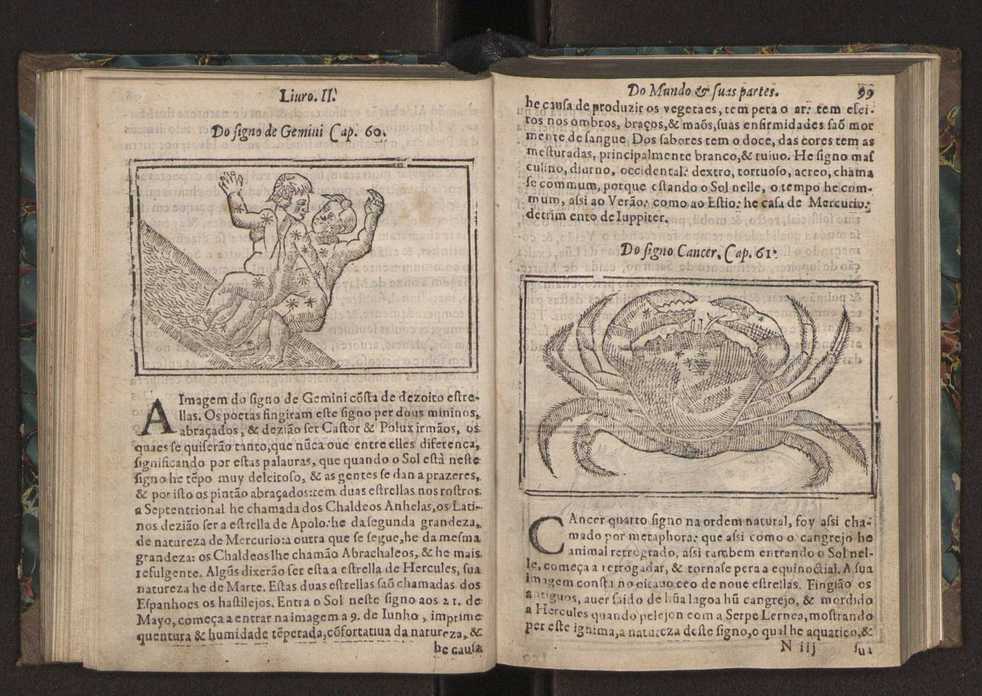 Liuro. II.
Do signo de Gemini Cap. 60.
A Imagem do signo de Gemini cõsta de dezoito estre-
llas. Os poetas fingiram este signo per dous mininos,
abraçados, & dezião ser Castor & Polux irmãos, os
quaes se quiserão tanto, que nũca oue entre elles diferença,
significando por estas palauras, que quando o Sol està neste
signo he tẽpo muy deleitoso, & as gentes se dan a prazeres,
& por isto os pintão abraçados: tem duas estrellas nos rostros:
a Septentrional he chamada dos Chaldeos Anhelas, os Lati-
nos dezião ser a estrella de Apolo: he da segunda grandeza,
de natureza de Mercurio: a outra que se segue, he da mesma
grandeza: os Chaldeos lhe chamão Abrachaleos, & he mais
resulgente. Algũs dixerão ser esta a estrella de Hercules, sua
natureza he de Marte. Estas duas estrellas saõ chamadas dos
Espanhoes os hastilejos. Entra o Sol neste signo aos 21. de
Mayo, começa a entrar na imagem a 9. de Iunho, imprime
quentura & humidade tẽperada, cõfortatiua da natureza, &
he causa
Do Mundo & suas partes. 99
he causa de produzir os vegetaes, tem pera o ar: tem efei-
tos nos ombros, braços, & maõs, suas enfirmidades saõ mor
mente de sangue. Dos sabores tem o doce, das cores tem as
mesturadas, principalmente branco, & ruiuo. He signo mas
culino, diurno, occidental: dextro, tortuoso, aereo, chama
se commum, porque estando o Sol nelle, o tempo he com-
mum, assi ao Verão, como ao Estio: he casa de Mercurio:
detrim ento de Iuppiter.
Do signo Cancer, Cap. 61.
CAncer quarto signo na ordem natural, foy assi cha-
mado por metaphora: que assi como o cangrejo he
animal retrogrado, assi tambem entrando o Sol nel-
le, começa a retrogadar, & tornase pera a equinoctial. A sua
imagem consta no oitauo ceo de noue estrellas. Fingião os
antiguos, auer saido de hũa lagoa hũ cangrejo, & mordido
a Hercules quando pelejou com a Serpe Lernea, mostrando
per este ignima, a natureza deste signo, o qual he aquatico, &
N iij sua